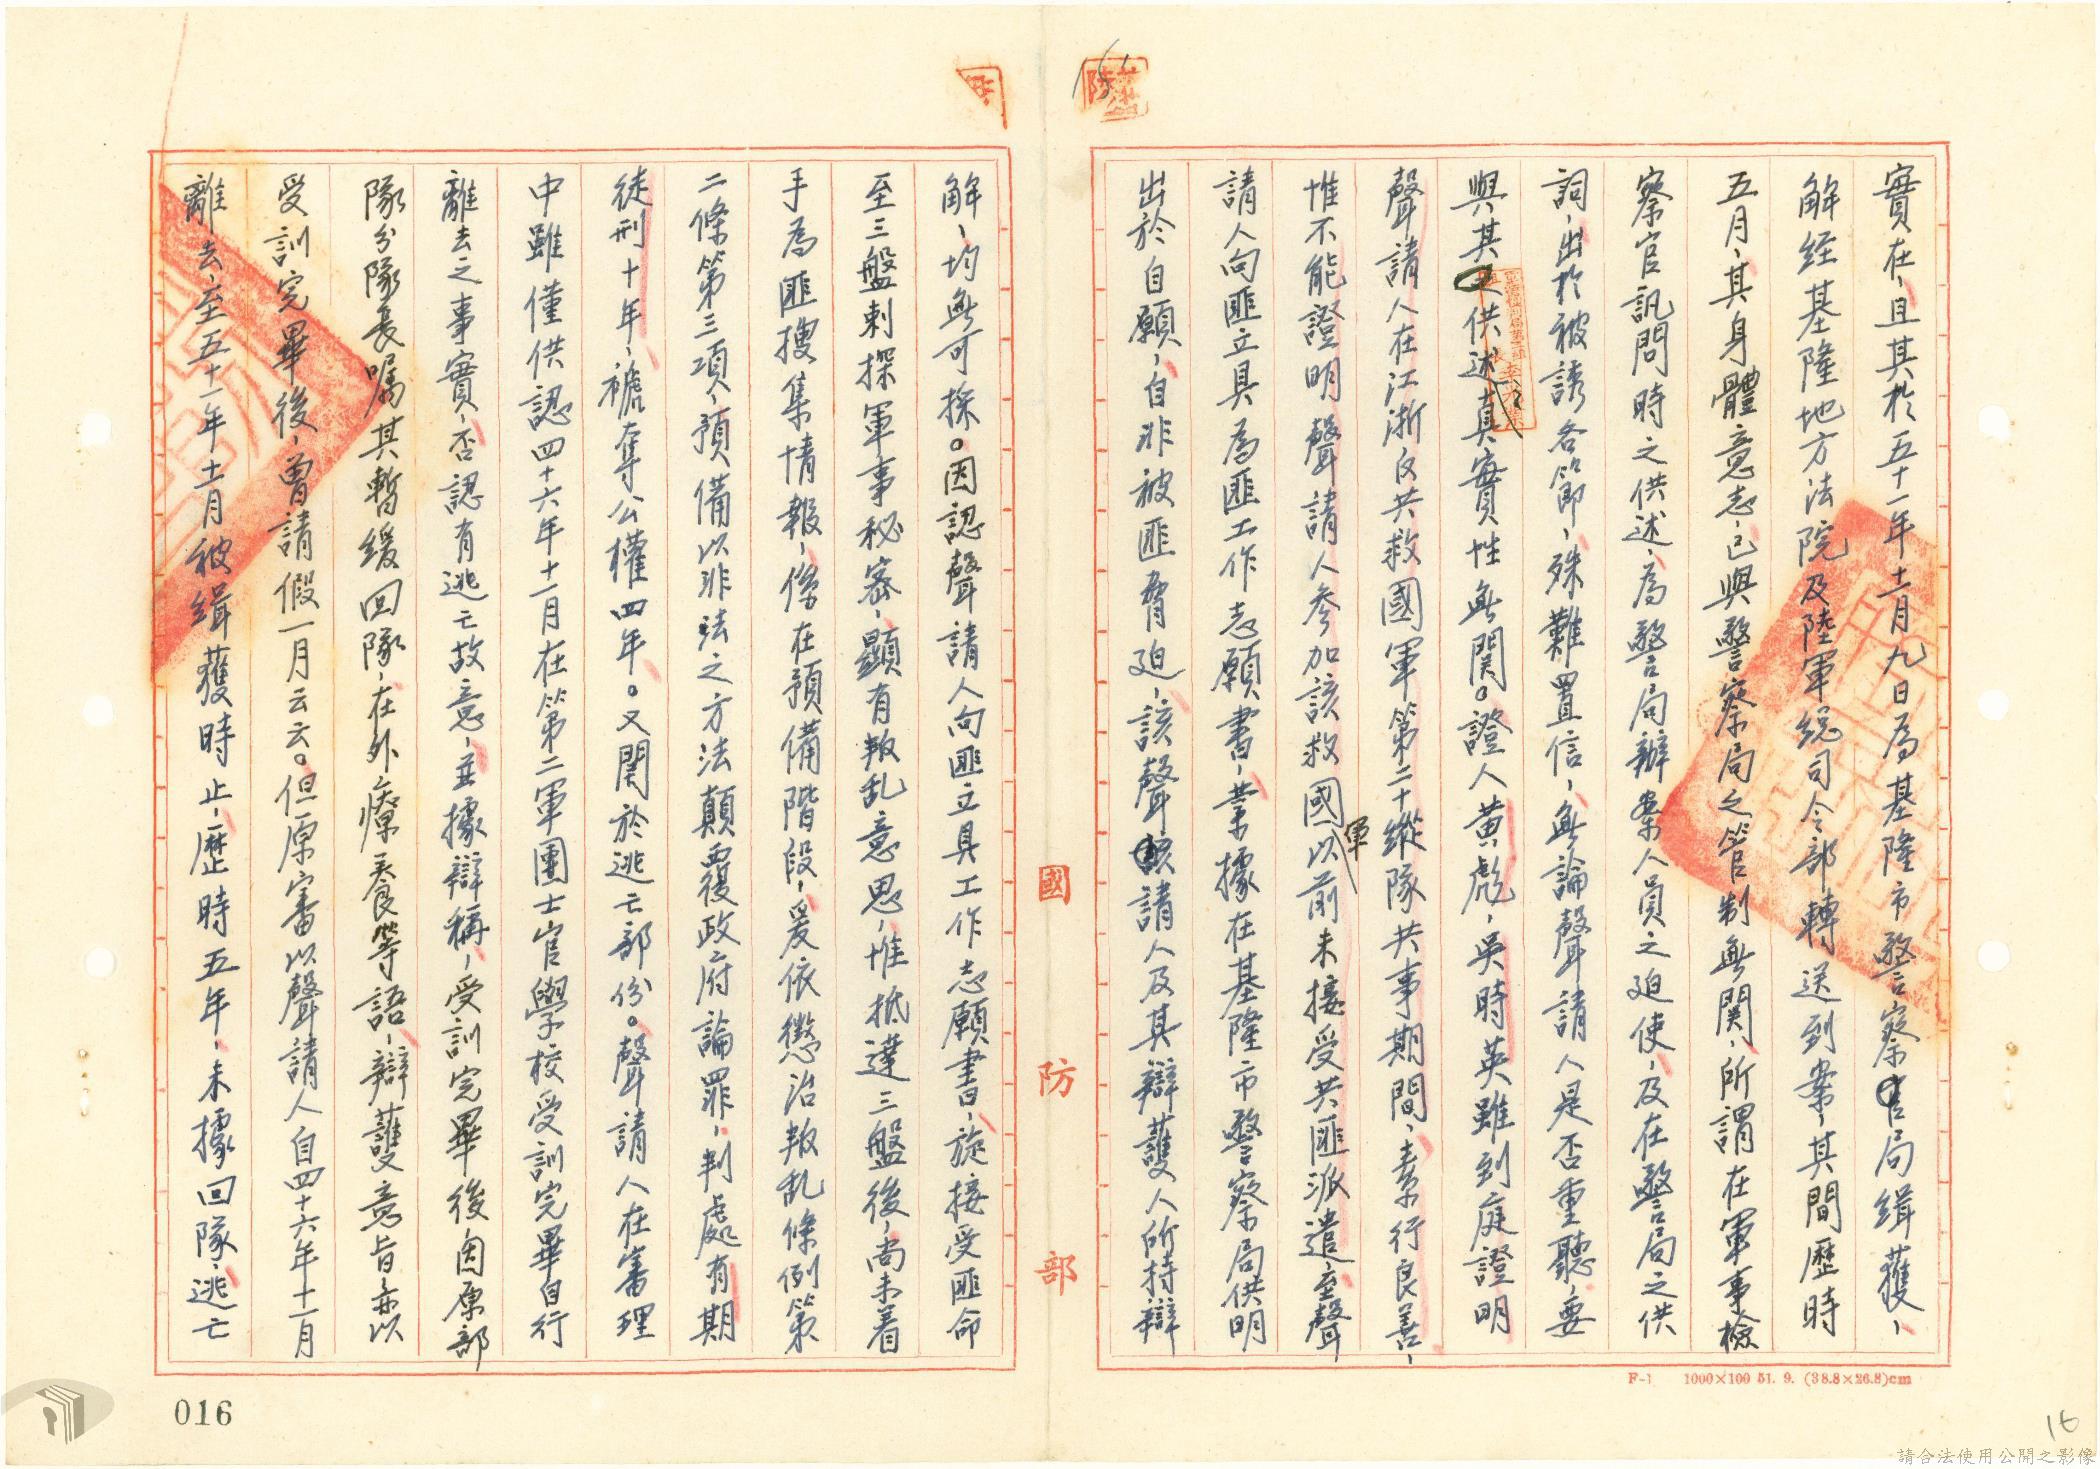 實在，且其於五十一年十二月九日為基隆市警察局緝獲，
解經基隆地方法院及陸軍總司令部轉送到案，其間歷時
五月，其身體意志，已與警察局之管制無関，所謂在軍事檢
察官訊問時之供述，為警局辦案人員之迫使，及在警局之供
詞，出於被誘各節，殊難置信，無論聲請人是否重聽，要
與其供述真實性無関。證人黃彪，吳時英雖到庭證明
聲請人在江浙反共救國軍第二十縱隊共事期間，素行良善，
惟不能證明聲請人參加該救國軍以前未接受共匪派遣，至聲
請人向匪立具為匪工作志願書，業據在基隆市警察局供明
出於自願，自非被匪脅迫，該聲請人及其辯護人所持辯
解，均無可採。因認聲請人向匪立具工作志願書，旋接受匪命
至三盤刺探軍事秘密，顯有叛乱意思，惟抵達三盤後，尚未着
手為匪搜集情報，係在預備階段，爰依懲治叛乱條例第
二條第三項，預備以非法之方法顛覆政府論罪，判處有期
徒刑十年，褫奪公權四年。又関於逃亡部份。聲請人在審理
中雖僅供認四十六年十一月在第二軍團士官學校受訓完畢自行
離去之事實，否認有逃亡故意，並據辯稱，受訓完畢後因原部
隊分隊長囑其暫緩回隊，在外療養等語，辯護意旨，亦以
受訓完畢後，曾請假一月云云。但原審以聲請人自四十六年十一月
離去，至五十一年十二月被緝獲時止，歷時五年，未據回隊，逃亡
國防部
F-1 1000×100 51. 9. (38.8×26.8)cm
016
16
請合法使用公開之影像